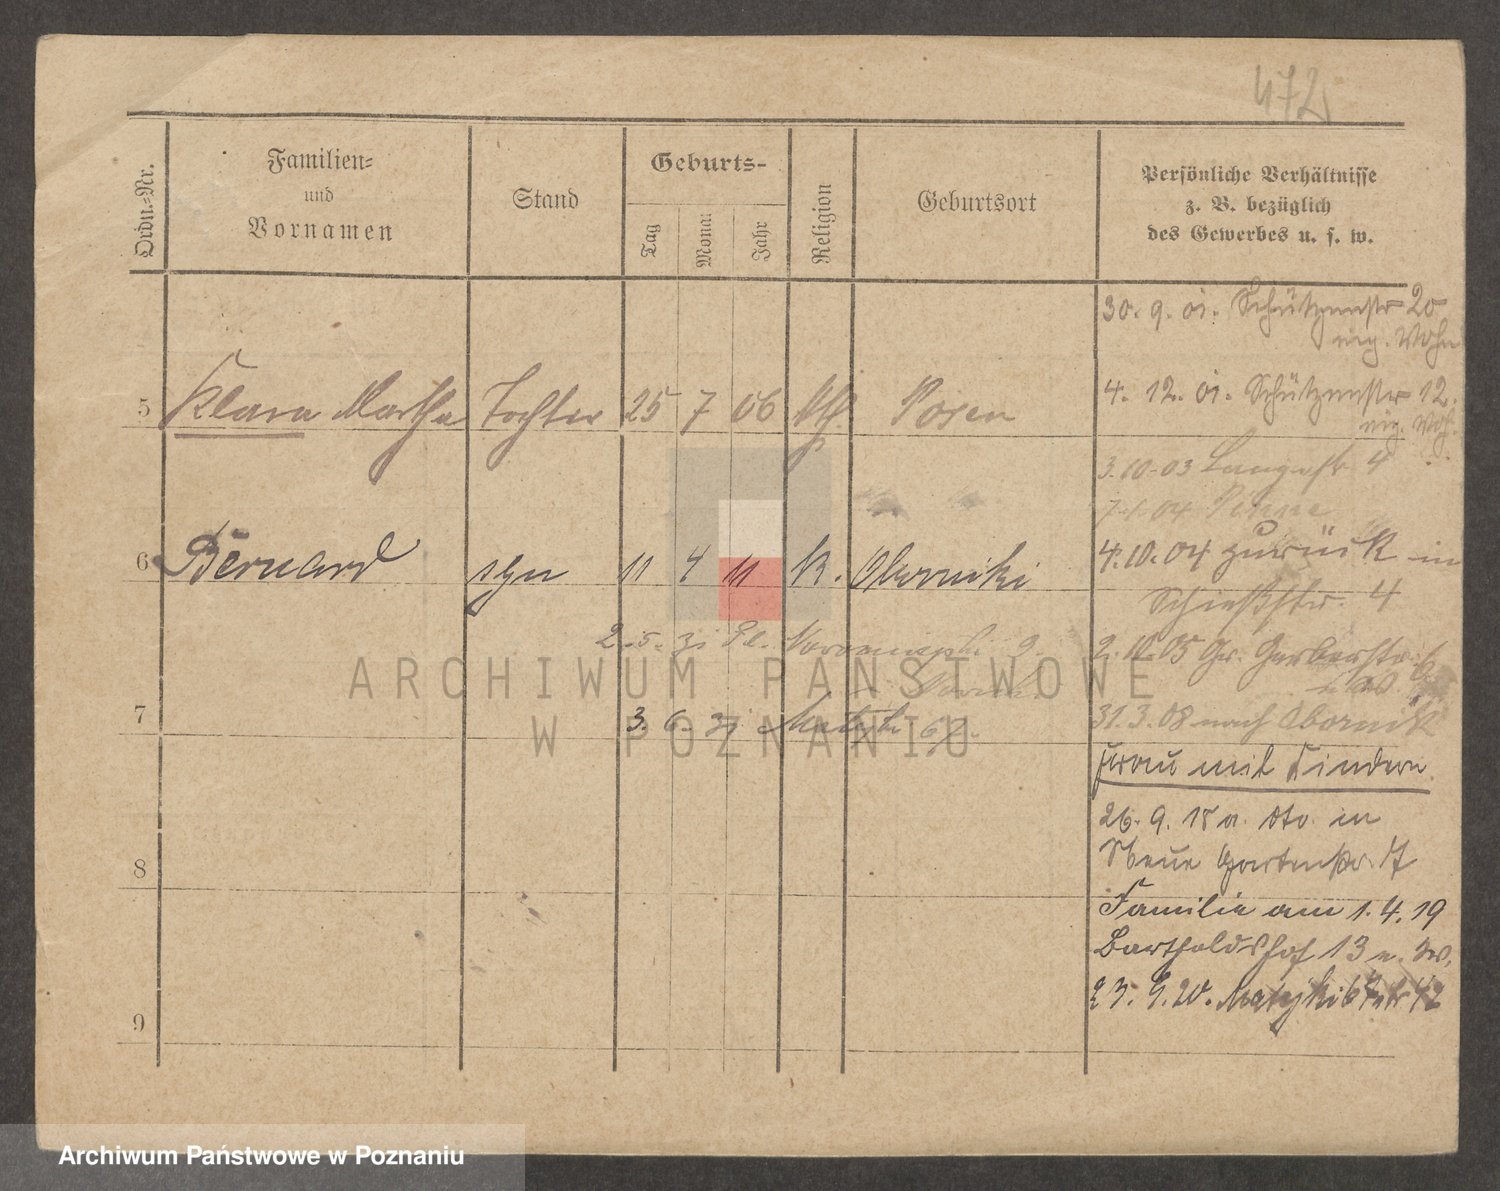 472
Ordn.=Nr.
Familien=
und
Vornamen
Stand
Geburts-
Tag
Monat
Jahr
Religion
Geburtsort
Persönliche Verhältnisse
z. B. bezüglich
des Gewerbes u. s. w.
30. 9. 01. Schützenstr 20
4. 12. 01. Schützenstr 12.
5 Klara Martha Tochter 25 7 06 kth. Posen
3.10.03 Langestr 4
04 Penne
6 Bernard syn 11 4 11 k. Oborniki
4.10.04 zurück in
Schießstr. 4
2. 5. 31
2.10.05 Gr. Gerberstr. 6
7
3. 6. 31 Matejki 67.
31.3.08 nach Obornik
Frau mit Kindern
26. 9. 18 a. dto. in
8
Neue Gartenstr.
Familie am 1. 4. 19
Bartholdshof 13
9
23. 9. 20. Matejki 67
ARCHIWUM PAŃSTWOWE
W POZNANIU
Archiwum Państwowe w Poznaniu